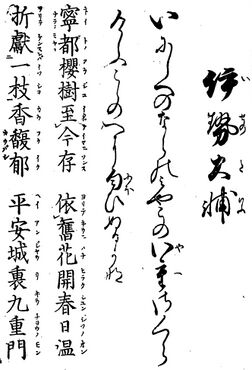 伊勢大輔
いにしへのならのみやこの八重さくら
けふこゝのへに匂ひぬるかな
寧都櫻樹至今存　依舊花開春日温
折獻一枝香馥郁　平安城裏九重門